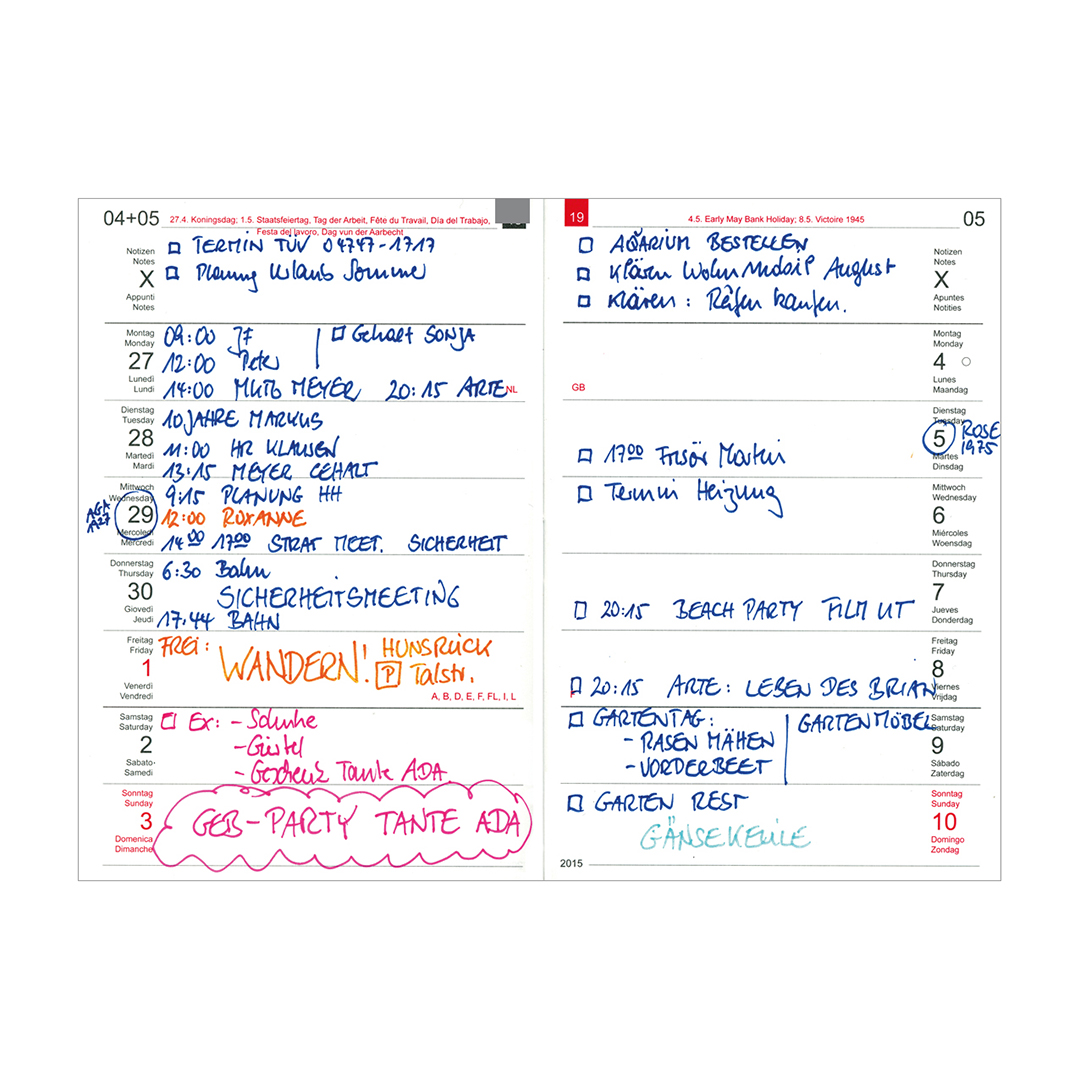 04+05
27.4. Koningsdag; 1.5. Staatsfeiertag, Tag der Arbeit, Fête du Travail, Día del Trabajo,
Festa del lavoro, Dag vun der Aarbecht
Notizen
Notes
X
Appunti
Notes
☐ TERMIN TÜV 04747-1717
☐ Planung Urlaub Sommer
Montag
Monday
27
Lunedì
Lundi
09:00 JF | ☐ Gehalt SONJA
12:00 Peter
14:00 MEYER 20:15 ARTE
NL
Dienstag
Tuesday
28
Martedì
Mardi
10 JAHRE MARKUS
11:00 HR KLAUSEN
13:15 MEYER GEHALT
Mittwoch
Wednesday
29
Mercoledì
Mercredi
1927
9:15 PLANUNG HH
12:00 ROXANNE
14:00 17:00 STRAT MEET. SICHERHEIT
Donnerstag
Thursday
30
Giovedì
Jeudi
6:30 Bahn
SICHERHEITSMEETING
17.44 BAHN
Freitag
Friday
1
Venerdì
Vendredi
FREI: WANDERN! HUNSRÜCK
P Talstr.
A, B, D, E, F, FL, I, L
Samstag
Saturday
2
Sabato
Samedi
☐ Ex: - Schuhe
- Gürtel
- Geschenk Tante ADA
Sonntag
Sunday
3
Domenica
Dimanche
GEB-PARTY TANTE ADA
19
4.5. Early May Bank Holiday; 8.5. Victoire 1945
05
☐ AQARIUM BESTELLEN
☐ Klären Wohnmobil August
☐ Klären: Reifen kaufen.
Notizen
Notes
X
Apuntes
Notities
GB
Montag
Monday
4
Lunes
Maandag
☐ 17:00 Frisör Martin
Dienstag
Tuesday
5
Martes
Dinsdag
ROSE
1975
☐ Termin Heizung
Mittwoch
Wednesday
6
Miércoles
Woensdag
☐ 20:15 BEACH PARTY FILM UT
Donnerstag
Thursday
7
Jueves
Donderdag
☐ 20:15 ARTE: LEBEN DES BRIAN
Freitag
Friday
8
Viernes
Vrijdag
☐ GARTENTAG: | GARTENMÖBEL
- RASEN MÄHEN
- VORDERBEET
Samstag
Saturday
9
Sábado
Zaterdag
☐ GARTEN REST
GÄNSEKEULE
Sonntag
Sunday
10
Domingo
Zondag
2015